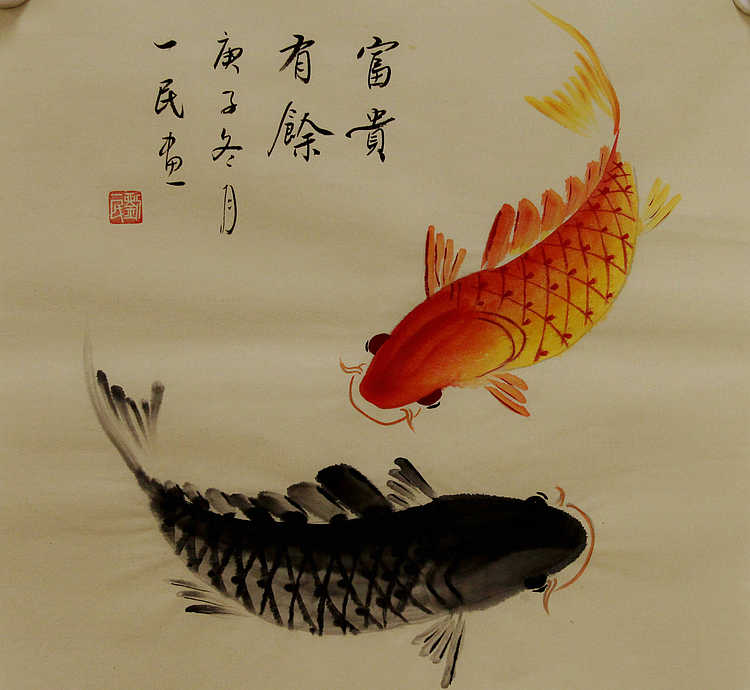 富貴
有餘
庚子冬月
一民畫
劉一民